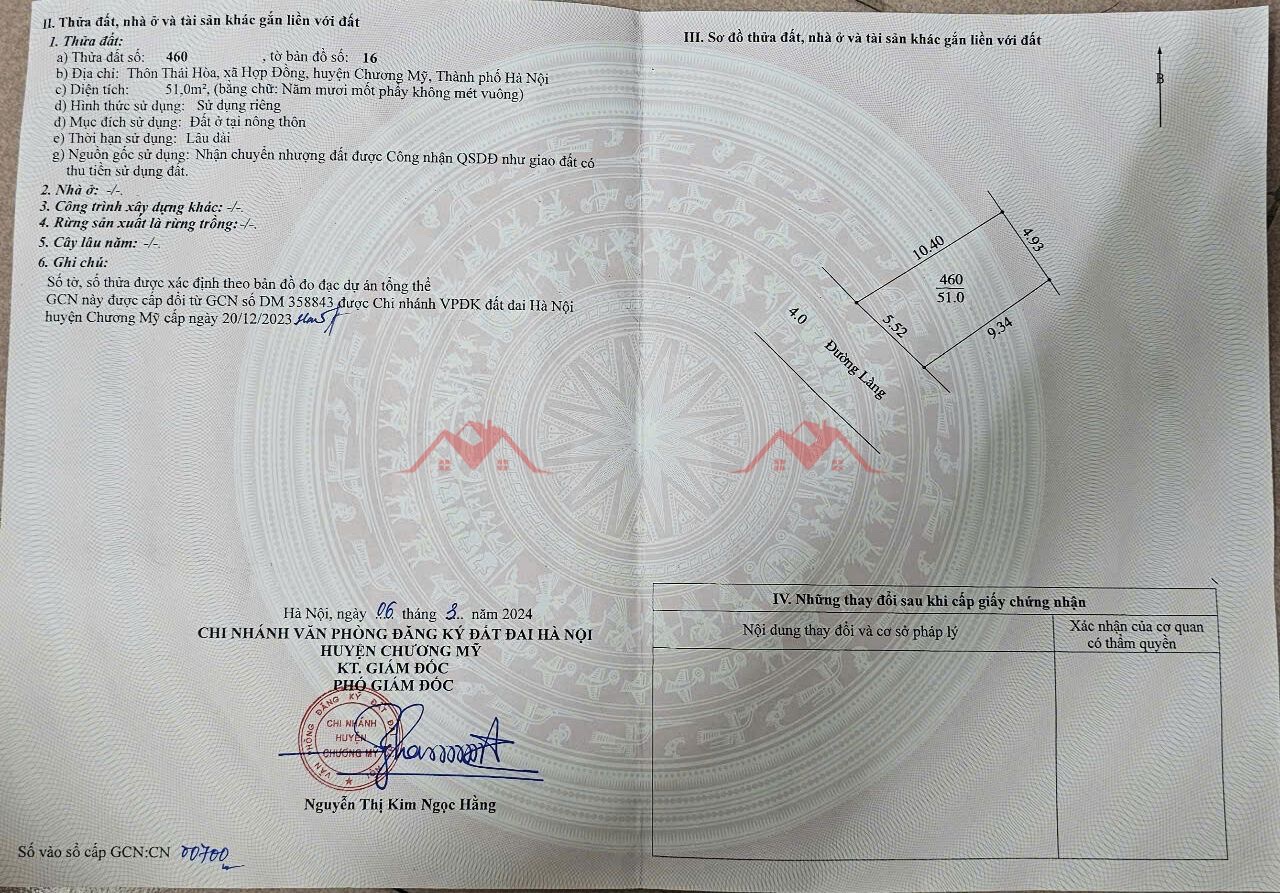 II. Thửa đất, nhà ở và tài sản khác gắn liền với đất
1. Thửa đất:
a) Thửa đất số: 460 , tờ bản đồ số: 16
b) Địa chỉ: Thôn Thái Hòa, xã Hợp Đồng, huyện Chương Mỹ, Thành phố Hà Nội
c) Diện tích: 51,0m², (bằng chữ: Năm mươi mốt phẩy không mét vuông)
d) Hình thức sử dụng: Sử dụng riêng
đ) Mục đích sử dụng: Đất ở tại nông thôn
e) Thời hạn sử dụng: Lâu dài
g) Nguồn gốc sử dụng: Nhận chuyển nhượng đất được Công nhận QSDĐ như giao đất có
thu tiền sử dụng đất.
2. Nhà ở: -/-.
3. Công trình xây dựng khác: -/-.
4. Rừng sản xuất là rừng trồng: -/-.
5. Cây lâu năm: -/-.
6. Ghi chú:
Số tờ, số thửa được xác định theo bản đồ đo đạc dự án tổng thể
GCN này được cấp đổi từ GCN số DM 358843 được Chi nhánh VPĐK đất đai Hà Nội
huyện Chương Mỹ cấp ngày 20/12/2023
Hà Nội, ngày 06 tháng 3 năm 2024
CHI NHÁNH VĂN PHÒNG ĐĂNG KÝ ĐẤT ĐAI HÀ NỘI
HUYỆN CHƯƠNG MỸ
KT. GIÁM ĐỐC
PHÓ GIÁM ĐỐC
VĂN PHÒNG ĐĂNG KÝ ĐẤT ĐAI HÀ NỘI
CHI NHÁNH
HUYỆN
CHƯƠNG MỸ
Nguyễn Thị Kim Ngọc Hằng
Số vào sổ cấp GCN:CN 00700
III. Sơ đồ thửa đất, nhà ở và tài sản khác gắn liền với đất
B
10.40
4.93
460
51.0
5.52
9.34
4.0
Đường Làng
IV. Những thay đổi sau khi cấp giấy chứng nhận
Nội dung thay đổi và cơ sở pháp lý
Xác nhận của cơ quan
có thẩm quyền